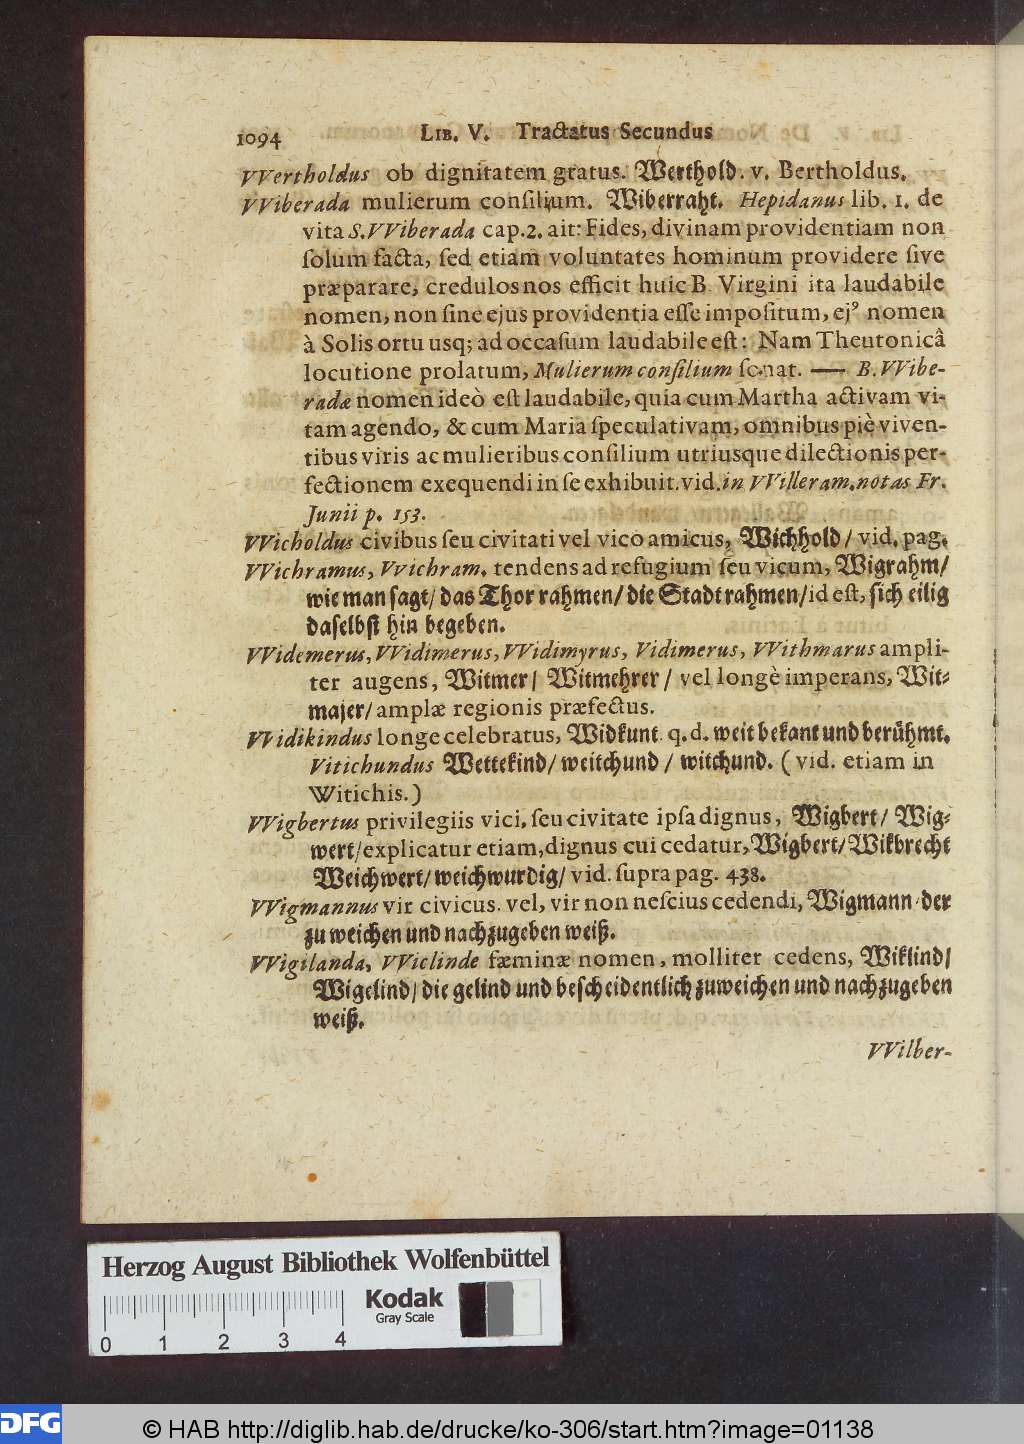 1094 LIB. V. Tractatus Secundus
VVertholdus ob dignitatem gratus. Werthold. v. Bertholdus.
VViberada mulierum consilium. Wiberraht. Hepidanus lib. 1. de
vita S. VViberada cap. 2. ait: Fides, divinam providentiam non
solum facta, sed etiam voluntates hominum providere sive
præparare, credulos nos efficit huic B. Virgini ita laudabile
nomen, non sine ejus providentia esse impositum, ejꝰ nomen
à Solis ortu usq; ad occasum laudabile est: Nam Theutonicâ
locutione prolatum, Mulierum consilium sonat. — B. VVibe-
radæ nomen ideò est laudabile, quia cum Martha activam vi-
tam agendo, & cum Maria speculativam, omnibus piè viven-
tibus viris ac mulieribus consilium utriusque dilectionis per-
fectionem exequendi in se exhibuit. vid. in VVilleram. notas Fr.
Junii p. 153.
VVicholdus civibus seu civitati vel vico amicus, Wichhold / vid. pag.
VVichramus, Vvichram. tendens ad refugium seu vicum, Wigrahm/
wie man sagt/ das Thor rahmen/ die Stadt rahmen/ id est, sich eilig
daselbst hin begeben.
VVidemerus, VVidimerus, VVidimyrus, Vidimerus, VVithmarus ampli-
ter augens, Witmer/ Witmehrer/ vel longè imperans, Wit-
majer/ amplæ regionis præfectus.
VVidikindus longe celebratus, Widkunt. q. d. weit bekant und berühmt.
Vitichundus Wettekind/ weitchund / witchund. ( vid. etiam in
Witichis.)
VVigbertus privilegiis vici, seu civitate ipsa dignus, Wigbert/ Wig-
wert/ explicatur etiam, dignus cui cedatur, Wigbert/ Wikbrecht
Weichwert/ weichwurdig/ vid. supra pag. 438.
VVigmannus vir civicus. vel, vir non nescius cedendi, Wigmann der
zu weichen und nachzugeben weiß.
VVigilanda, VViclinde fæminæ nomen, molliter cedens, Wiklind/
Wigelind/ die gelind und bescheidentlich zuweichen und nachzugeben
weiß.
VVilber-
Herzog August Bibliothek Wolfenbüttel
Kodak
Gray Scale
0 1 2 3 4
DFG © HAB http://diglib.hab.de/drucke/ko-306/start.htm?image=01138